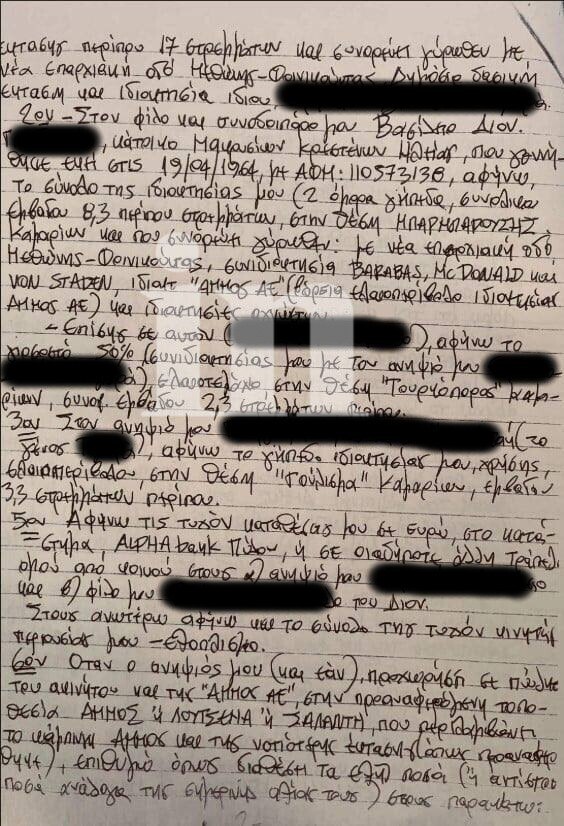 εκτάσης περίπου 17 στρεμμάτων και συνορεύει γύρωθεν με
νέα επαρχιακή οδό Μεθώνης-Φοινικούντας, Δημόσια δασική
έκταση και ιδιοκτησία ιδίου,
2ον - Στον φίλο και συνοδοιπόρο μου Βασίλειο Διον.
, κάτοικο Μακρισίων Κρεστένων Ηλείας, που γεννή-
θηκε εκεί στις 19/04/1964, με ΑΦΜ: 110573138, αφήνω,
το σύνολο της ιδιοκτησίας μου (2 όμορα γήπεδα, συνολικού
εμβαδού 8,3 περίπου στρεμμάτων, στην θέση ΜΠΑΡΜΠΑΡΟΥΣΗΣ
Καμαρίων και που συνορεύει γύρωθεν: με νέα επαρχιακή οδό
Μεθώνης-Φοινικούντας, συνιδιοκτησία BARABAS, McDONALD και
VON STADEN, ιδιοκτ. "ΑΜΜΟΣ ΑΕ" (βόρεια ελαιοπερίβολο ιδιοκτησίας
ΑΜΜΟΣ ΑΕ) και ιδιοκτησίες
- Επίσης σε αυτόν ( ), αφήνω το
ποσοστό 50% (συνιδιοκτησίας μου με τον ανηψιό μου
), στην θέση "Τουρκόπορος" Καμα-
ρίων, συνολ. εμβαδού 2,3 στρεμμάτων περίπου.
3ον Στον ανηψιό μου (το
γένος ), αφήνω το γήπεδο ιδιοκτησίας μου, χρήσης,
ελαιοπερίβολου, στην θέση "Γούλισμα" Καμαρίων, εμβαδού
3,3 στρεμμάτων περίπου.
5ον Αφήνω τις τυχόν καταθέσεις μου σε ευρώ, στο κατά-
στημα, ALPHA bank Πύλου, ή σε οιαδήποτε άλλη τράπεζα
ομού από κοινού στους α) ανηψιό μου
και β) φίλο μου του Διον.
Στους ανωτέρω αφήνω και το σύνολο της τυχόν κινητής
περιουσίας μου - εξοπλισμό.
6ον Όταν ο ανηψιός μου (και εάν), προχωρήση σε πώληση
του ακινήτου και της "ΑΜΜΟΣ ΑΕ", στην προαναφερόμενη τοπο-
θεσία ΑΜΜΟΣ ή ΛΟΥΤΣΕΝΑ ή ΣΑΛΑΝΤΗ, που περιλαμβάνει
το κάμπινγκ ΑΜΜΟΣ και της νοτιότερης έκτασης (όπως προαναφέρ
θηκε), επιθυμώ όπως διαθέση τα εξής ποσά (ή αντίστοιχα
ποσά ανάλογα της σημερινής αξίας τους) στους παρακάτω:
in